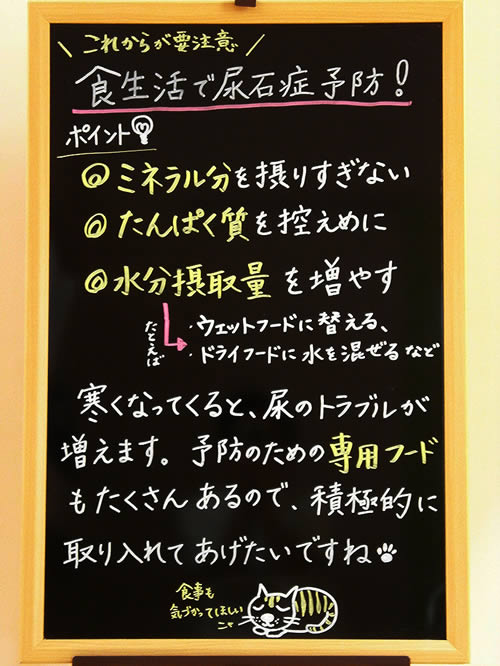 \ これからが要注意 /
食生活で尿石症予防!
ポイント
◎ ミネラル分を摂りすぎない
◎ たんぱく質を控えめに
◎ 水分摂取量 を増やす
たとえば
・ウェットフードに替える、
・ドライフードに水を混ぜるなど
寒くなってくると、尿のトラブルが
増えます。予防のための専用フード
もたくさんあるので、積極的に
取り入れてあげたいですね
食事も
気づかってほしい
ニャ